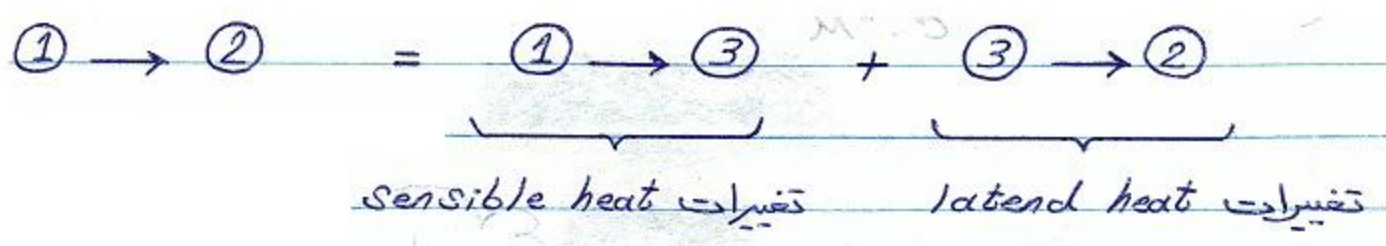 ① → ② = ① → ③ + ③ → ②
تغییرات sensible heat تغییرات latend heat